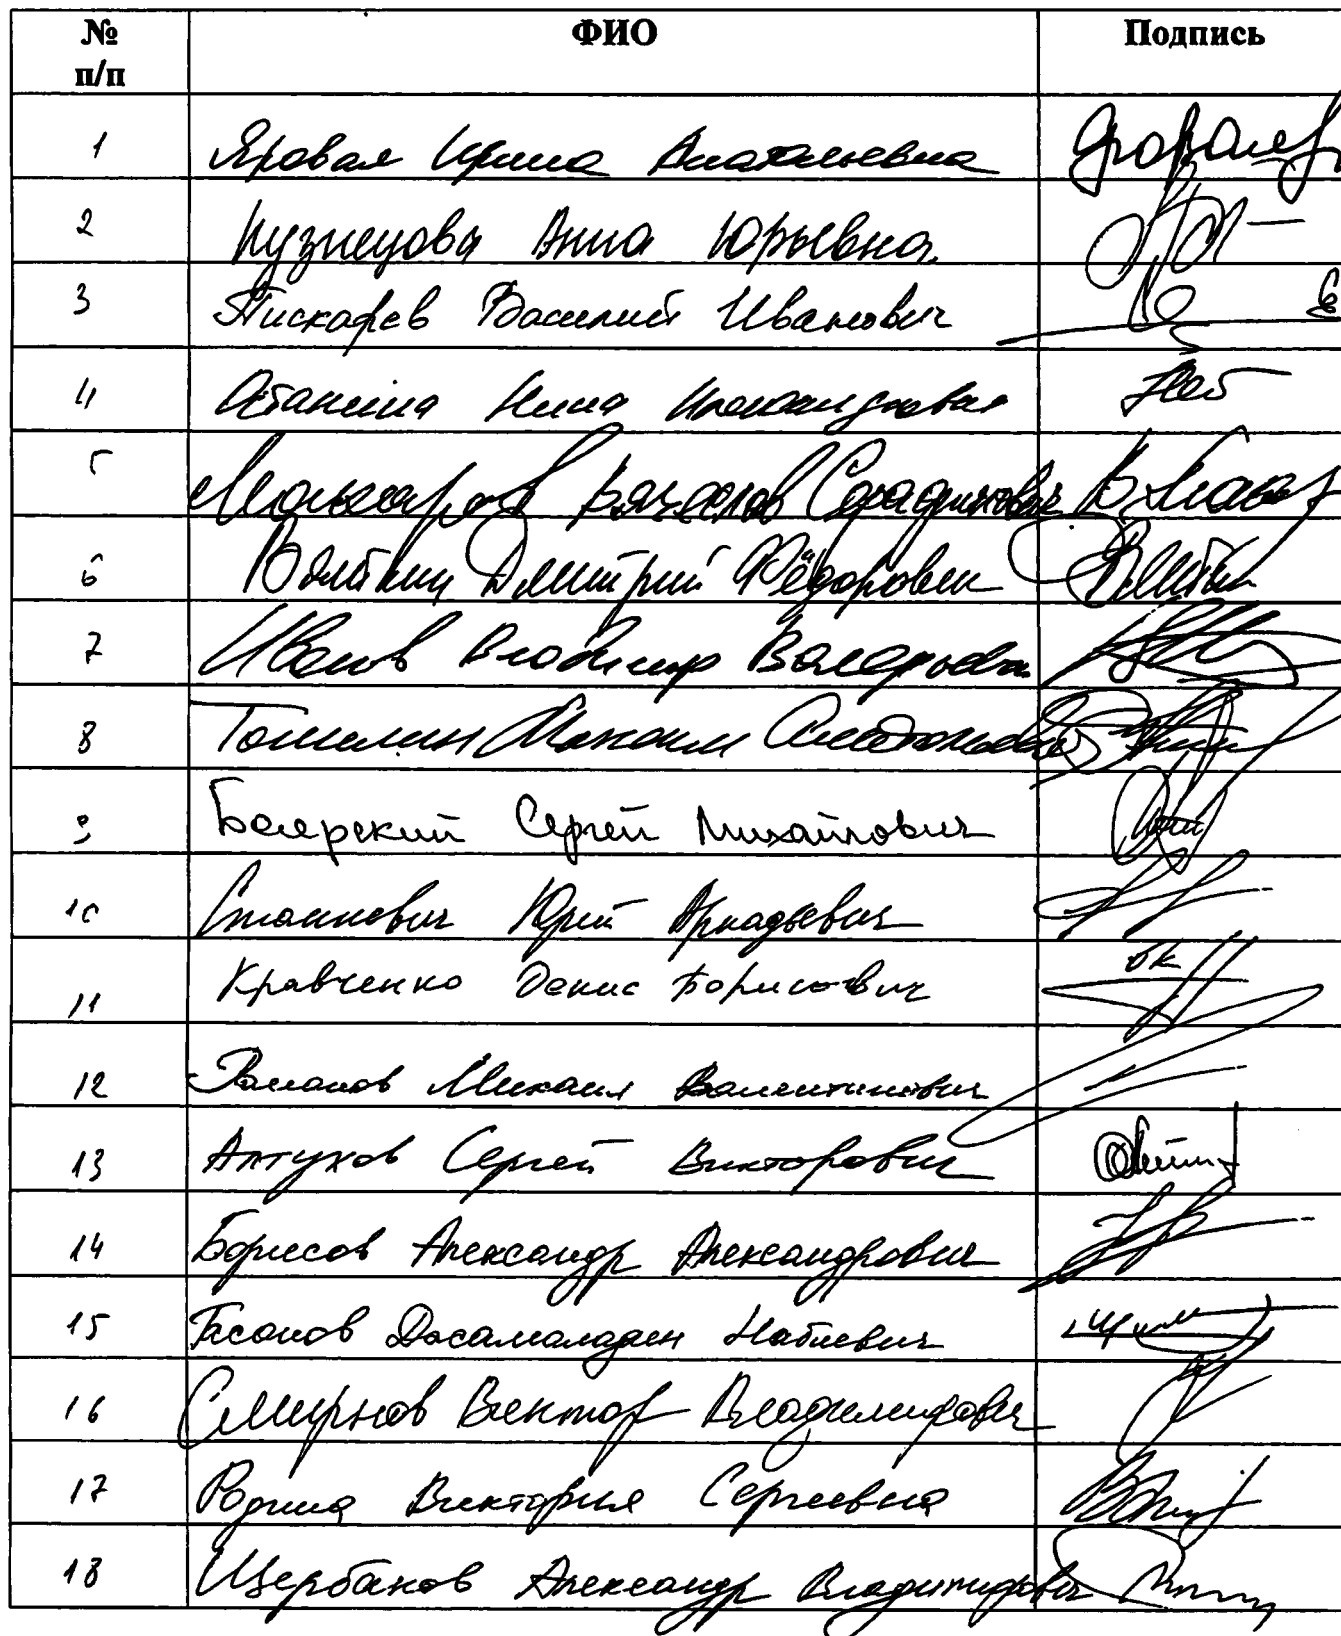 № п/п ФИО Подпись
1 Яровая Ирина Анатольевна
2 Кузнецова Анна Юрьевна
3 Пискарев Василий Иванович
4 Останина Нина Александровна
5 Макаров Вячеслав Серафимович
6 Вяткин Дмитрий Фёдорович
7 Иванов Владимир Валерьевич
8 Топилин Максим Анатольевич
9 Боярский Сергей Михайлович
10 Станкевич Юрий Аркадьевич
11 Кравченко Денис Борисович
12 Романов Михаил Валентинович
13 Алтухов Сергей Викторович
14 Борисов Александр Александрович
15 Гасанов Джамаладин Набиевич
16 Смирнов Виктор Владимирович
17 Родина Виктория Сергеевна
18 Щербаков Александр Владимирович